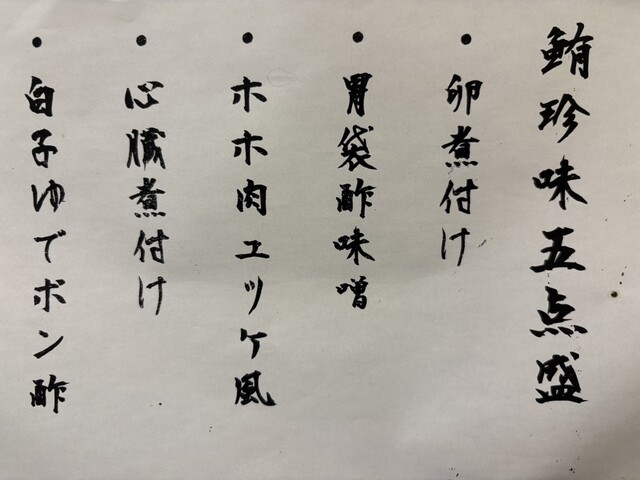 鮪珍味五点盛
・卵煮付け
・胃袋酢味噌
・ホホ肉ユッケ風
・心臓煮付け
・白子ゆでポン酢